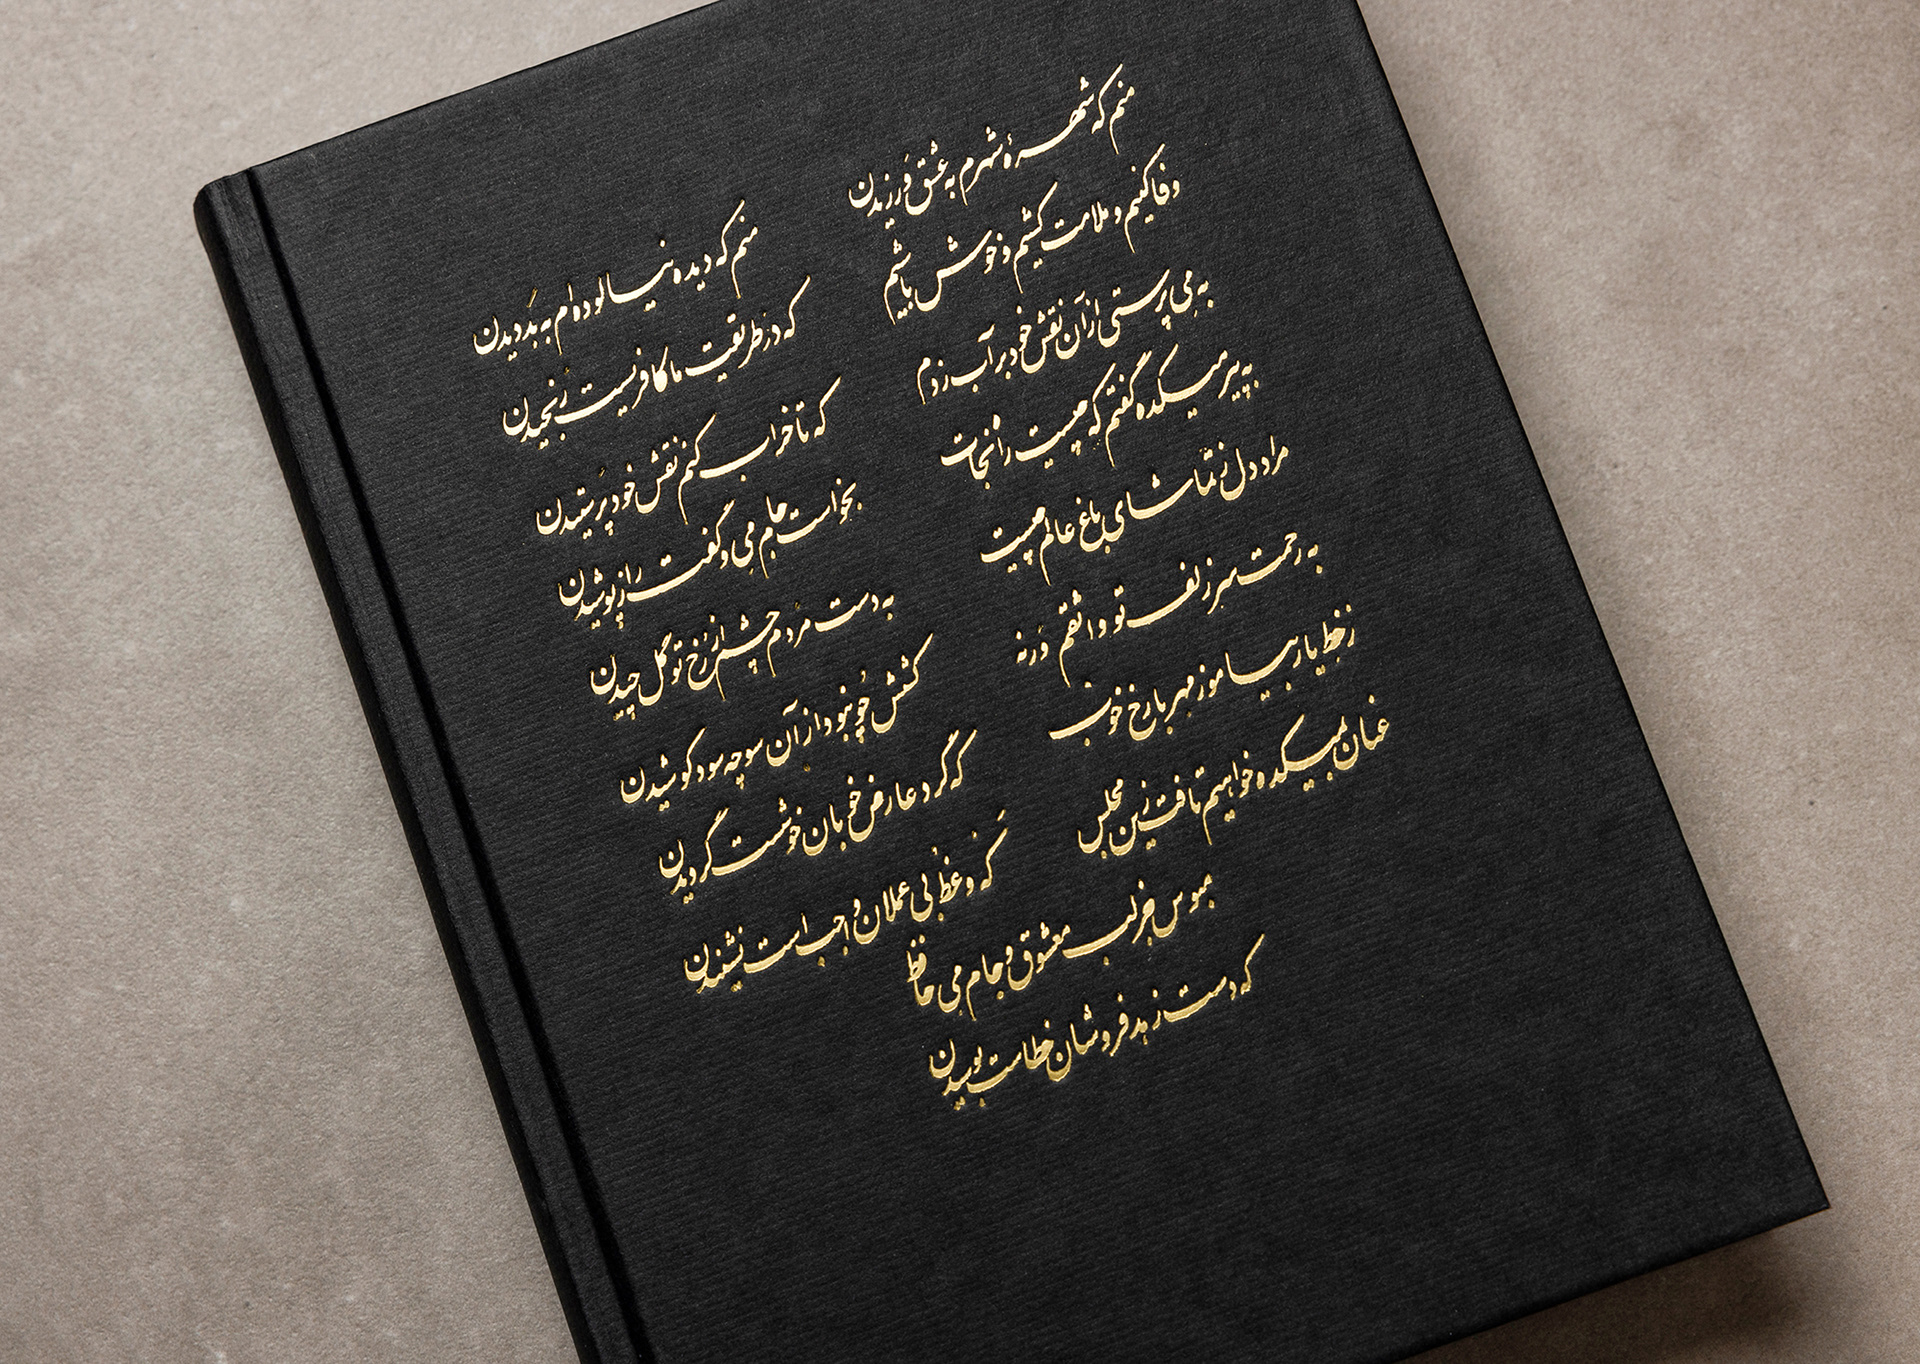 منم که شهرهٔ شهرم به عشق ورزیدن منم که دیده نیالوده‌ام به بد دیدن
وفا کنیم و ملامت کشیم و خوش باشیم که در طریقت ما کافریست رنجیدن
به می پرستی از آن نقش خود بر آب زدم که تا خراب کنم نقش خود پرستیدن
به پیر میکده گفتم که چیست راه نجات بخواست جام می و گفت راز پوشیدن
مراد دل ز تماشای باغ عالم چیست به دست مردم چشم از رخ تو گل چیدن
به رحمت سر زلف تو واثقم ورنه کشش چو نبود از آن سو چه سود کوشیدن
ز خط یار بیاموز مهر با رخ خوب که گرد عارض خوبان خوشست گردیدن
عنان بمیکده خواهیم تافت زین مجلس که وعظ بی عملان واجب است نشنیدن
مبوس جز لب معشوق و جام می حافظ
که دست زهد فروشان خطاست بوسیدن